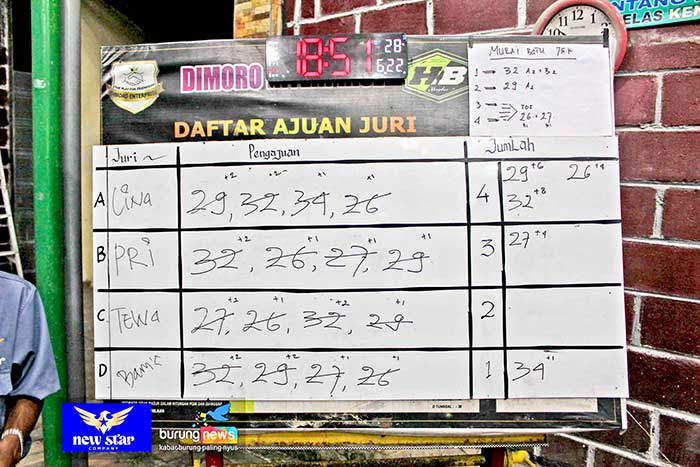 18:51 28
6 22
DIMORO
HB
DAFTAR AJUAN JURI
MURAI BATU 75K
1 → 32 A2 + B2
2 → 29 A2
3 →
4 → TOS
26 · 27
Juri ~ Pengajuan JumLah
A Lina +2 +2 +1 +1
29, 32, 34, 26 4 29+6 26+4
32+8
B PRI +2 +1 +1 +1
32, 26, 27, 29 3 27+4
C TEWA +2 +1 +2 +1
27, 26, 32, 29 2
D +2 +2 +1 +1
32, 29, 27, 26 1 34+1
new star
COMPANY
burungnews
kabasburung paling nyus